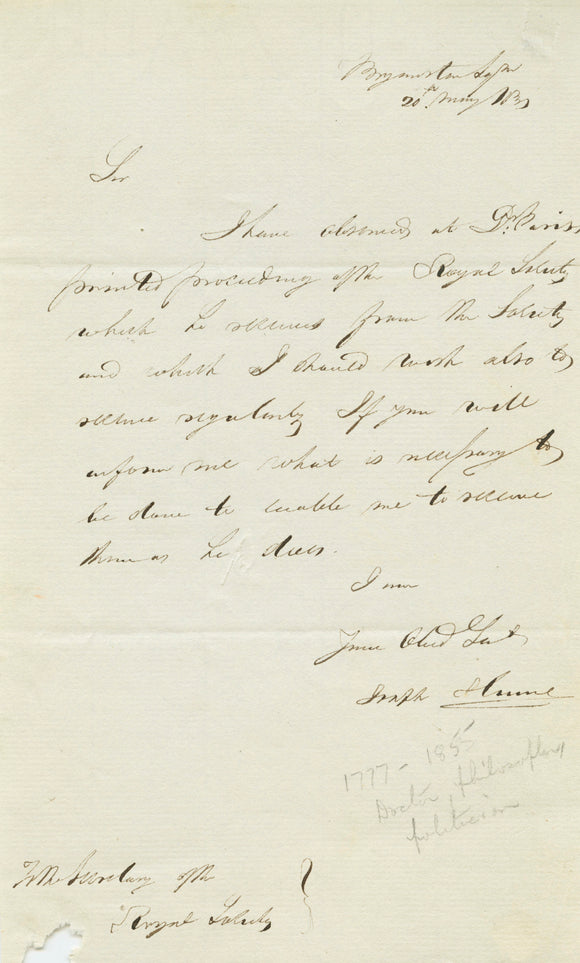 Bryanston Sqre
20th May 183
Sir
I have observed at Dr. Paris
printed proceeding of the Royal Society
which he receives from the Society
and which I should wish also to
receive regularly If you will
inform me what is necessary to
be done to enable me to receive
them as he does.
I am
Your Obed Sert
Joseph Hume
1777 - 1855
Doctor, philosopher,
politician
To the Secretary of the
Royal Society